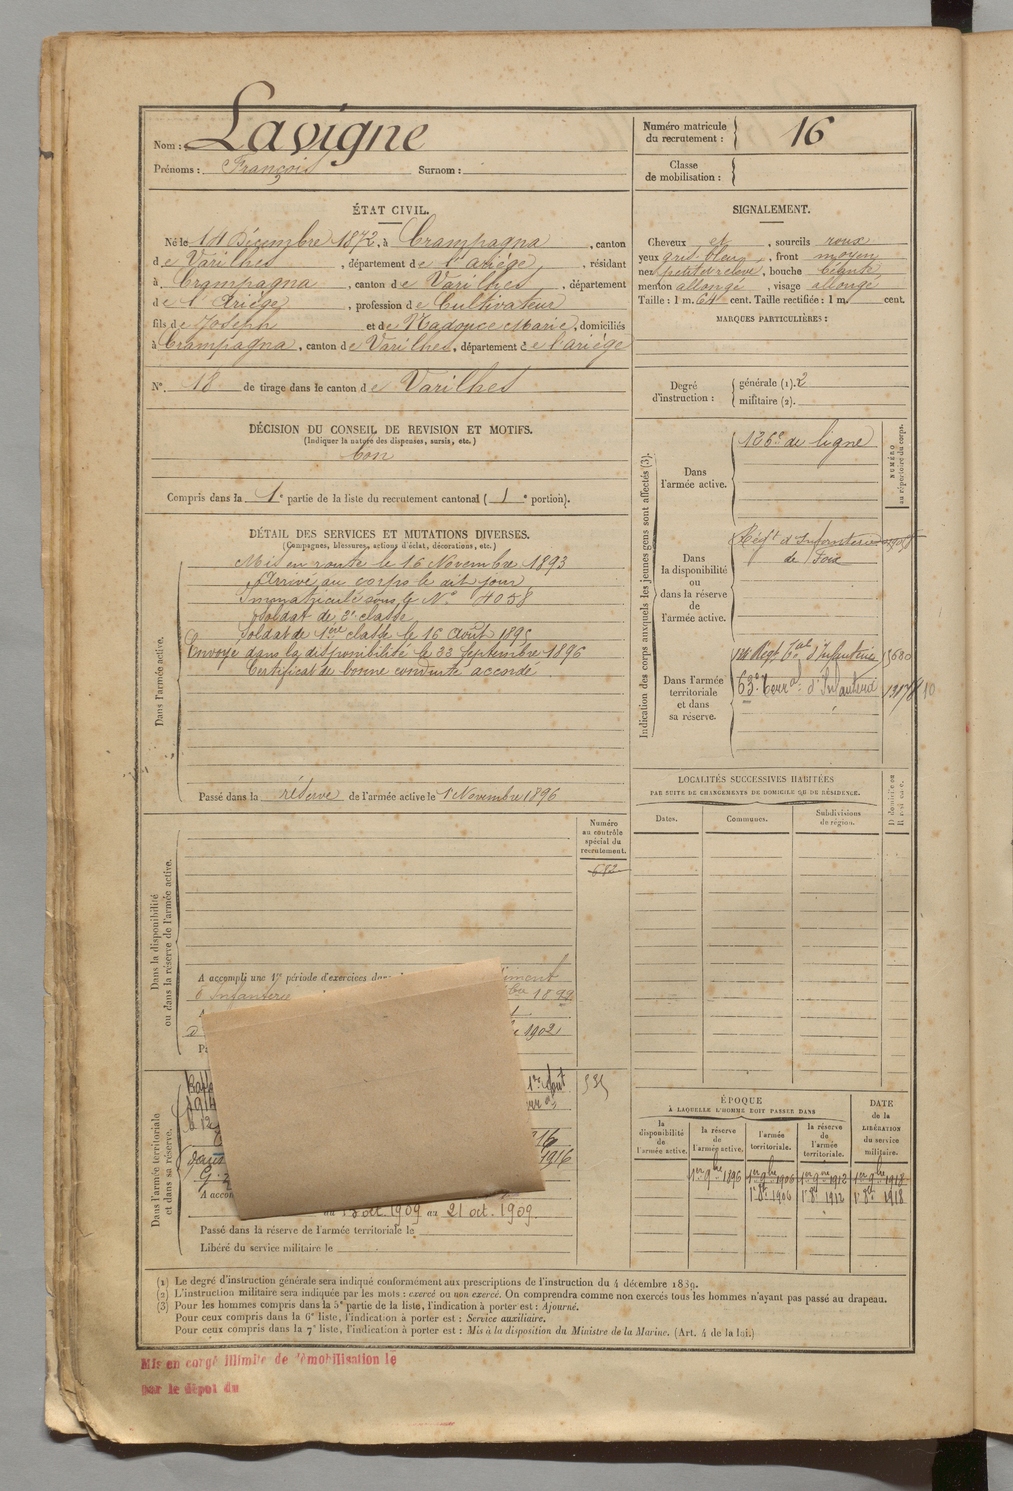 Nom : Lavigne
Prénoms : François Surnom :
Numéro matricule du recrutement : 16
Classe de mobilisation :
ÉTAT CIVIL.
Né le 14 Décembre 1872, à Crampagna, canton
de Varilhes, département de l'ariège, résidant
à Crampagna, canton de Varilhes, département
de l'Ariège, profession de Cultivateur
fils de Joseph et de Nadouce Marie, domiciliés
à Crampagna, canton de Varilhes, département de l'ariège
N°. 18 de tirage dans le canton de Varilhes
SIGNALEMENT.
Cheveux et, sourcils roux
yeux gris-bleu, front moyen
nez petit et relevé, bouche béante
menton allongé, visage allongé
Taille : 1 m. 64 cent. Taille rectifiée : 1 m cent.
MARQUES PARTICULIÈRES :
Degré d'instruction : générale (1). 2
militaire (2).
DÉCISION DU CONSEIL DE REVISION ET MOTIFS.
(Indiquer la nature des dispenses, sursis, etc.)
bon
Compris dans la 1e partie de la liste du recrutement cantonal ( 1e portion).
DÉTAIL DES SERVICES ET MUTATIONS DIVERSES.
(Campagnes, blessures, actions d'éclat, décorations, etc.)
Dans l'armée active.
Mis en route le 16 Novembre 1893
Arrivé au corps le dit jour
Immatriculé sous le N° 4058
Soldat de 2e classe
Soldat de 1ère classe le 16 Août 1895
Envoyé dans la disponibilité le 23 Septembre 1896
Certificat de bonne conduite accordé
Passé dans la réserve de l'armée active le 1 Novembre 1896
Indication des corps auxquels les jeunes gens sont affectés (3).
NUMÉRO au répertoire du corps.
Dans l'armée active.
126e de ligne
Dans la disponibilité ou dans la réserve de l'armée active.
Régt d'Infanterie
de Foix
Dans l'armée territoriale et dans sa réserve.
Régt Tal d'Infanterie
63e Terral d'Infanterie
LOCALITÉS SUCCESSIVES HABITÉES
PAR SUITE DE CHANGEMENTS DE DOMICILE OU DE RÉSIDENCE.
Dates. Communes. Subdivisions de région.
Numéro au contrôle spécial du recrutement.
Dans la disponibilité ou dans la réserve de l'armée active.
A accompli une 1re période d'exercices dans
d'Infanterie 1899
1902
Dans l'armée territoriale et dans sa réserve.
1er Août
16
1916
A accom
oct. 1909 au 21 oct. 1909.
Passé dans la réserve de l'armée territoriale le
Libéré du service militaire le
ÉPOQUE
À LAQUELLE L'HOMME DOIT PASSER DANS
la disponibilité de l'armée active. la réserve de l'armée active. l'armée territoriale. la réserve de l'armée territoriale.
DATE de la LIBÉRATION du service militaire.
1er 9bre 1896 1er 9bre 1906 1er 9bre 1912 1er 9bre 1918
1906 1912 1918
(1) Le degré d'instruction générale sera indiqué conformément aux prescriptions de l'instruction du 4 décembre 1889.
(2) L'instruction militaire sera indiquée par les mots : exercé ou non exercé. On comprendra comme non exercés tous les hommes n'ayant pas passé au drapeau.
(3) Pour les hommes compris dans la 5e partie de la liste, l'indication à porter est : Ajourné.
Pour ceux compris dans la 6e liste, l'indication à porter est : Service auxiliaire.
Pour ceux compris dans la 7e liste, l'indication à porter est : Mis à la disposition du Ministre de la Marine. (Art. 4 de la loi.)
Mis en congé illimité de démobilisation le
par le dépôt du